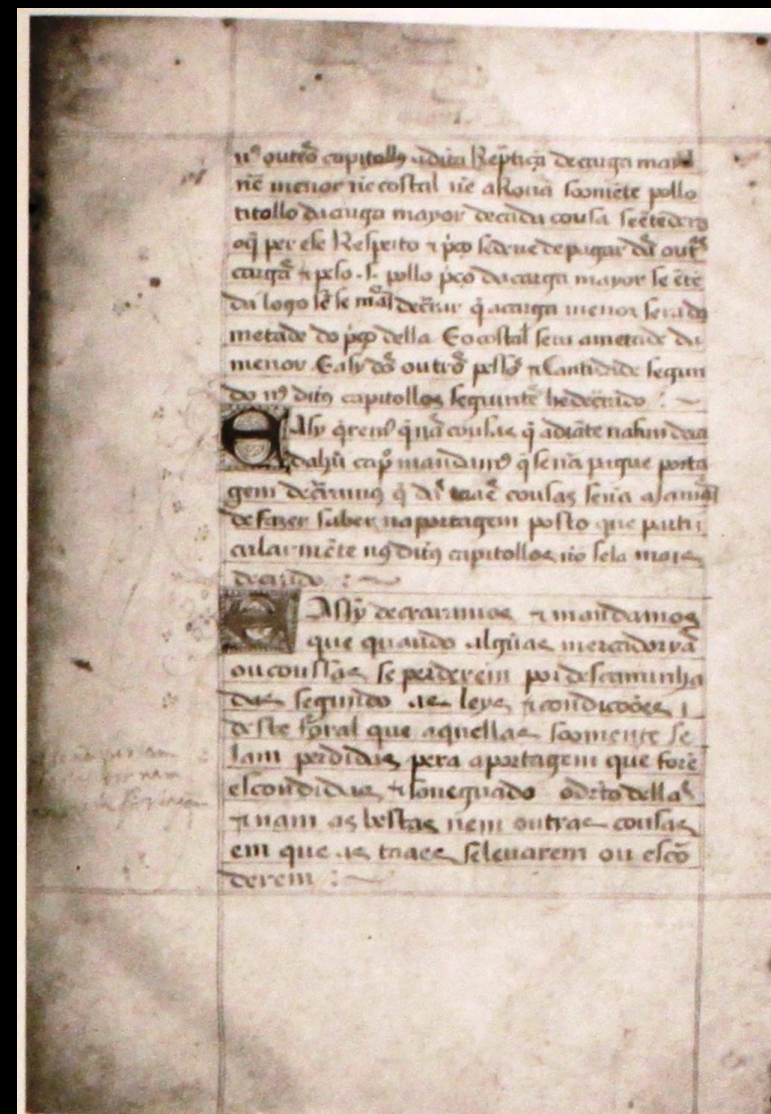 nos outros capitollos a dita Repetiçã de carga mayor
nẽ menor nẽ costal nẽ aRoua soomẽte pollo
titollo da carga mayor de cada cousa se ẽtẽdera
oq̃ per ese Respeito ⁊ pço se deue de pagar das outras
cargas ⁊ peso .s. pollo pço da carga mayor se ẽtẽ
da logo sẽ se mais decrar q̃ a carga menor sera da
metade do pço della. E o costal sera ametade da
menor. E asy dos outros pesos ⁊ cantidade segun
do nos ditos capitollos seguintes he decrado : ~
E Asy q̃remos q̃ das cousas q̃ adiãte na fim de ca
da hũ capº mandamos q̃ se nã pague porta
gem decraramos q̃ das taaes cousas se nã aja mais
de fazer saber na portagem posto que parti
cularmẽte nos ditos capitollos nõ seia mais
decrado : ~
E Assy decraramos ⁊ mandamos
que quando algũas mercadorias
ou coussas se perderem por descaminha
das segundo as leys ⁊ condições
deste foral que aquellas soomente se
iam perdidas pera a portagem que forẽ
escondidas ⁊ soneguado o dr̃to dellas
⁊ nam as bestas nem outras cousas
em que as taaes se leuarem ou escõ
derem : ~